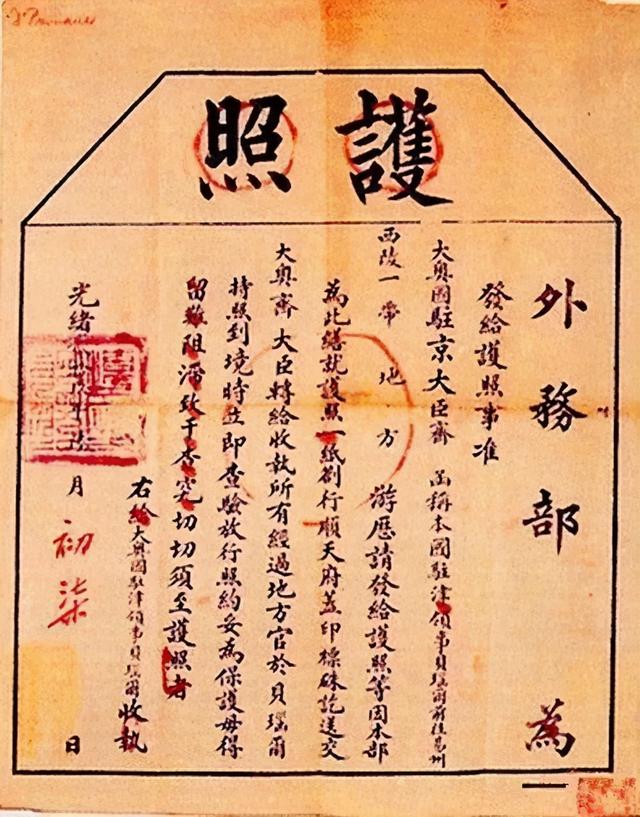 護照
外務部 為
發給護照事准
大奧國駐京大臣齊 函稱本國駐津領事貝瑤爾前往易州
西陵一帶地方 游歷請發給護照等因本部
為此繕就護照一紙劄行順天府蓋印標硃訖送交
大奧齊大臣轉給收執所有經過地方官於貝瑤爾
持照到境時立即查驗放行照約妥為保護毋得
留難阻滯致干查究切切須至護照者
右給大奧國駐津領事貝瑤爾收執
光緒 年 月初柒日